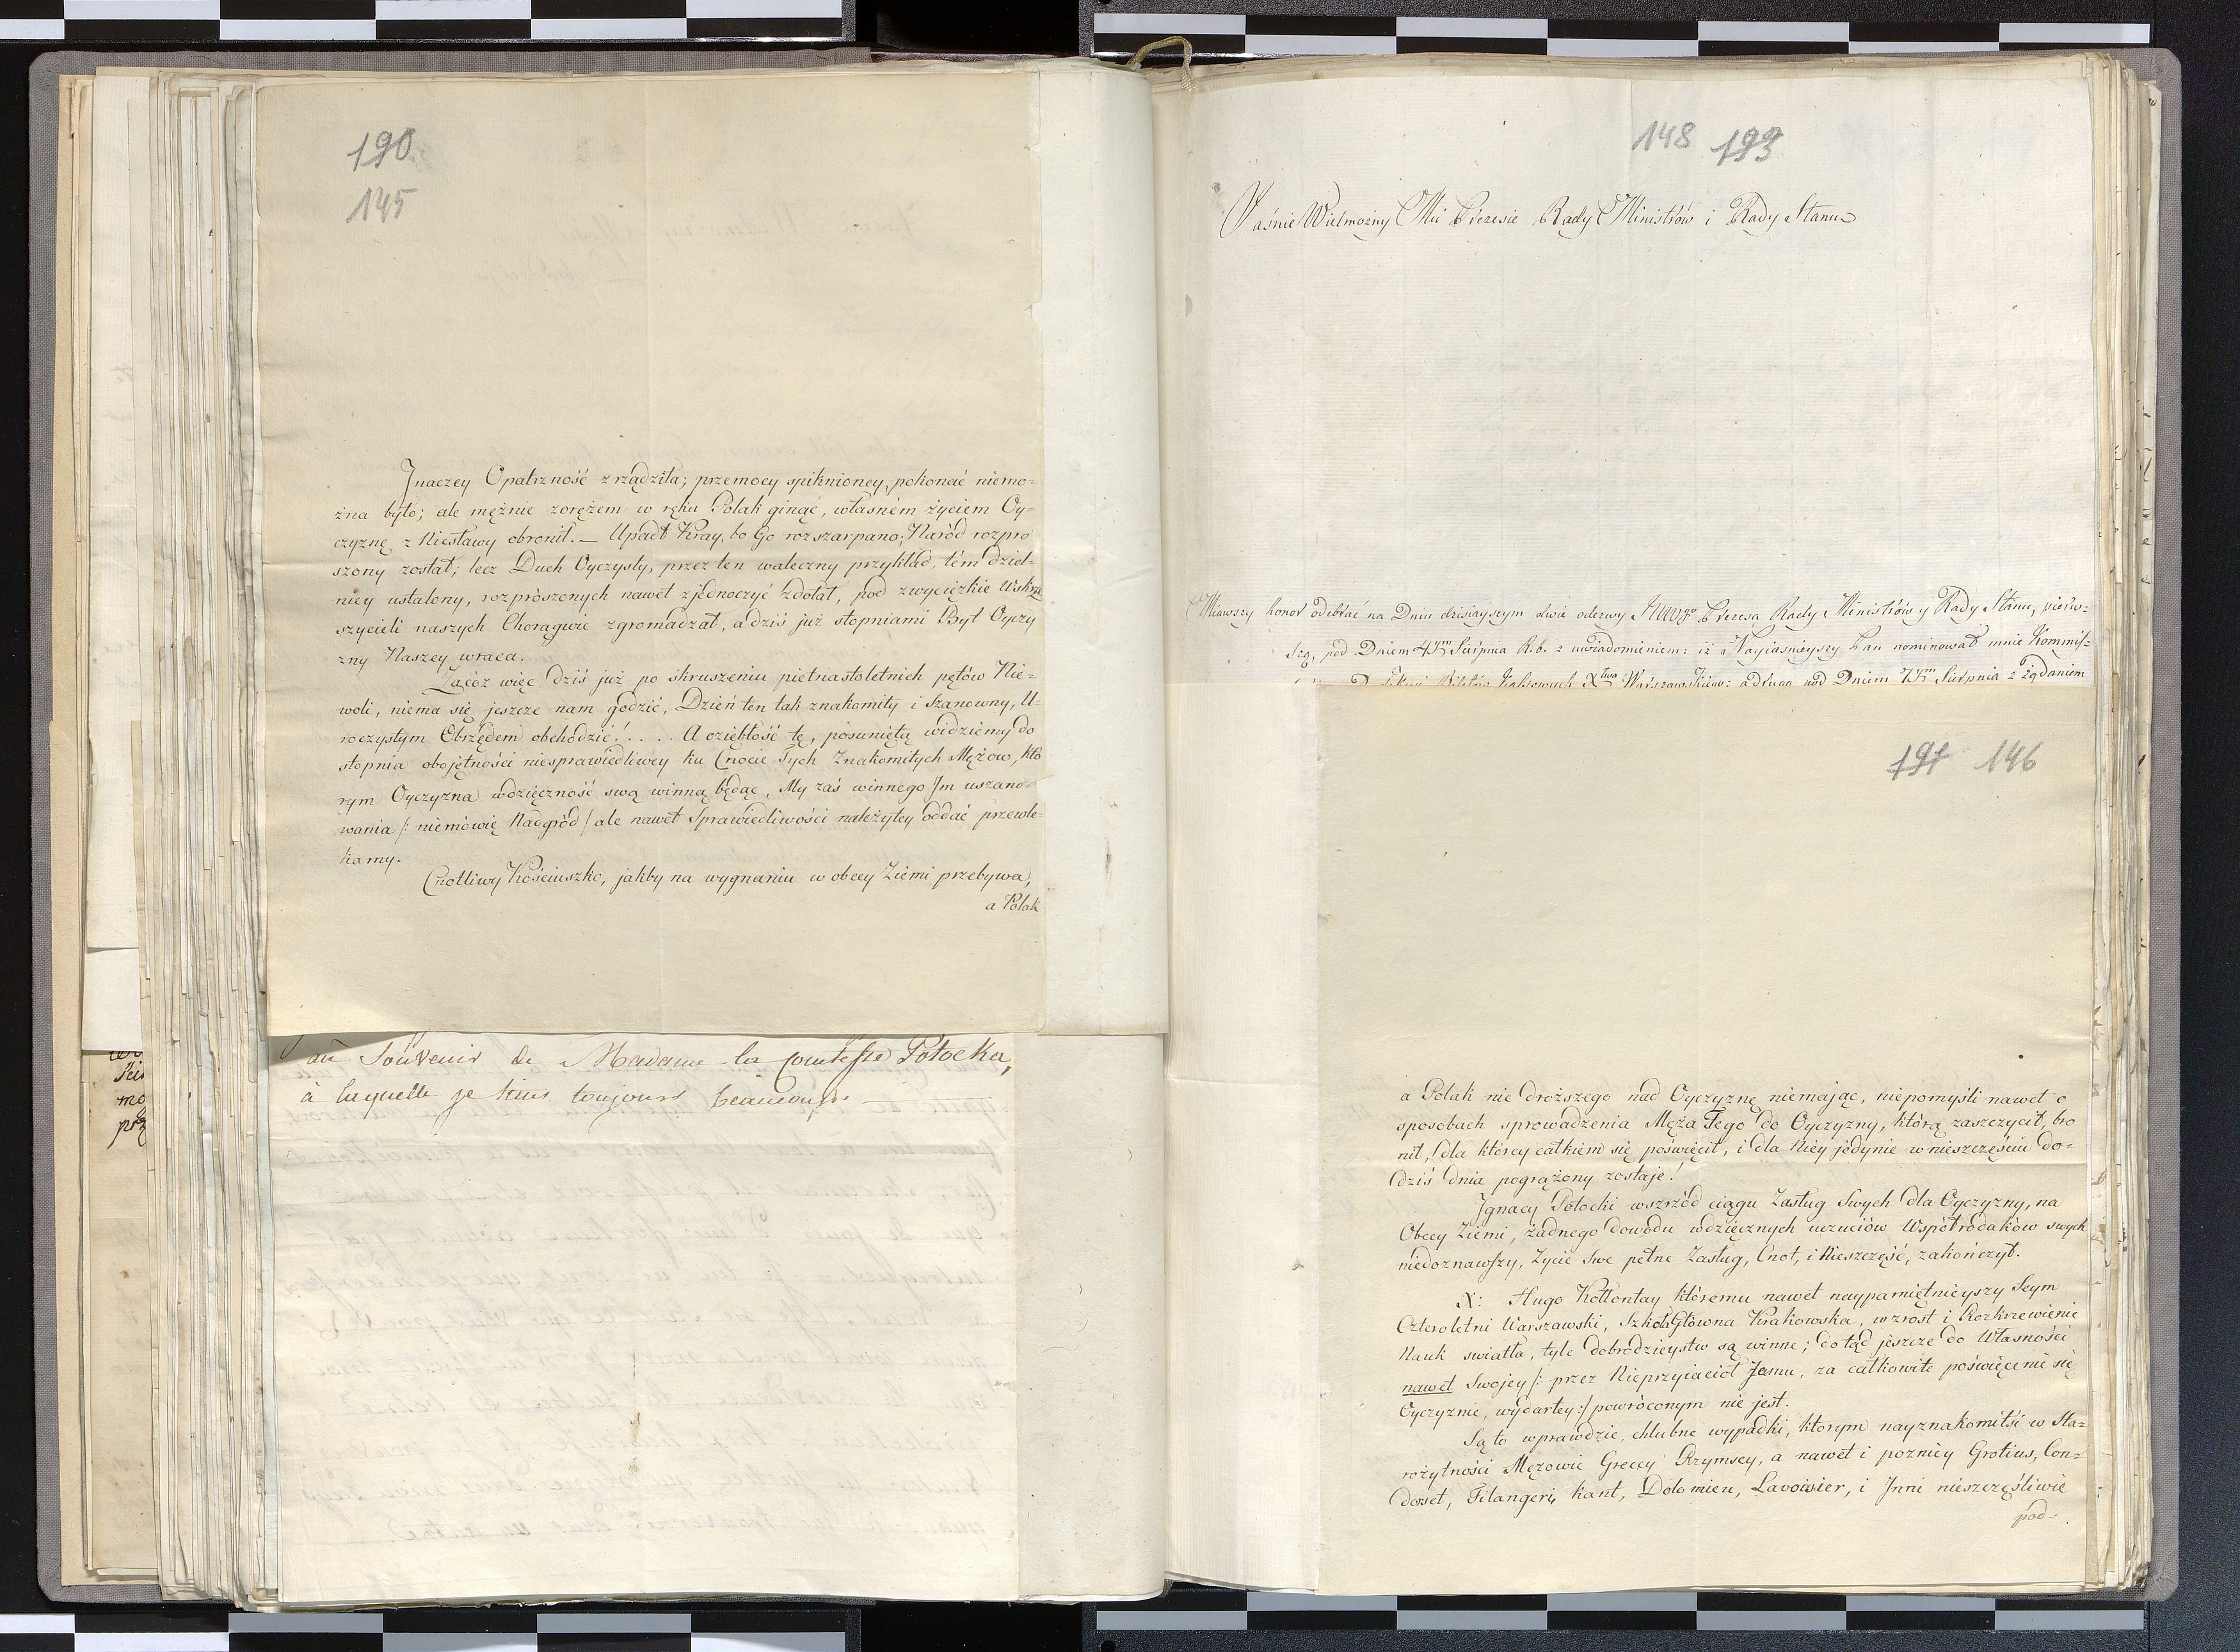 190
145
Jnaczey Opatrzność zrządziła; przemocy spiknioney, pokonać niemo-
żna było; ale mężnie zorężem w ręku Polak ginąc, własném życiem Oy-
czyznę z Niesławy obronił. — Upadł Kray, bo Go rozszarpano; Naród rozpro
szony został; lecz Duch Oyczysty, przez ten waleczny przykład, tém dziel-
niey ustalony, rozproszonych nawet zjédnoczyć zdołał, pod zwycięzkie Wskrze
szycieli naszych Chorągwie zgromadzał, a dziś już stopniami Byt Oyczy
zny Naszey wraca.
Zacóż więc dziś już po skruszeniu pietnastoletnich pętów Nie-
woli, niema się jeszcze nam godzić, Dzień ten tak znakomity i szanowny, U-
roczystym Obrzędem obchodzić!.... A oziębłość tę, posuniętą widziemy do
stopnia obojętności niesprawiedliwey ku Cnocie Tych Znakomitych Mężow, któ
rym Oyczyzna wdzięczność swą winną będąc, My zaś winnego Jm uszano-
wania /: niemówię Nadgród / ale nawet Sprawiedliwości należytey oddać przewle-
kamy.
Cnotliwy Kościuszko, jakby na wygnaniu w obcey Ziemi przebywa,
a Polak
au Souvenir de Madame la Comtesse Potocka,
à laquelle je tiens toujours beaucoup. —
148 193
Jaśnie Wielmożny Mći Prezesie Rady Ministrów i Rady Stanu
Miawszy honor odebrać na Dniu dzisiayszym dwie odezwy JWW Prezesa Rady Ministrów y Rady Stanu, pierw-
szą, pod Dniem 4ym Sierpnia R. b. z uwiadomieniem: iż Nayiaśnieyszy Pan nominował mnie Kommis-
Biletów Kassowych Xtwa Warszawskiego: a drugą pod Dniem 7ym Sierpnia z żądaniem
191 146
a Polak nic droższego nad Oyczyznę niemając, niepomyśli nawet o
sposobach sprowadzenia Męża Tego do Oyczyzny, którą zaszczycił, bro
nił, dla którey całkiem się poświęcił, i dla Niéy jedynie w nieszczęściu do-
dziś dnia pogrążony zostaje!
Jgnacy Potocki wszrzód ciągu Zasług Swych dla Oyczyzny, na
Obcey Ziemi, żadnego dowodu wdzięcznych uczuciów Współrodaków swych
niedoznawszy, Życie swe pełne Zasług, Cnot, i Nieszczęść, zakończył.
X: Hugo Kołłontay któremu nawet naypamiętnieyszy Seym
Czteroletni Warszawski, Szkoła Główna Krakowska, wzrost i Rozkrzewienie
Nauk swiatła, tyle dobrodzieystw są winne; dotąd jeszcze do Własności
nawet Swojey /: przez Nieprzyiaciół Jemu, za całkowite poświęcenie się
Oyczyznie, wydartey :/ powróconym nie jest.
Są to wprawdzie, chlubne wypadki, ktorym nayznakomitsi w Sta-
rożytności Mężowie Greccy Rzymscy, a nawet i pozniey Grotius, Con-
dorset, Filangeri, Kant, Dolomieu, Lavoisier, i Jnni nieszczęśliwie
pod-